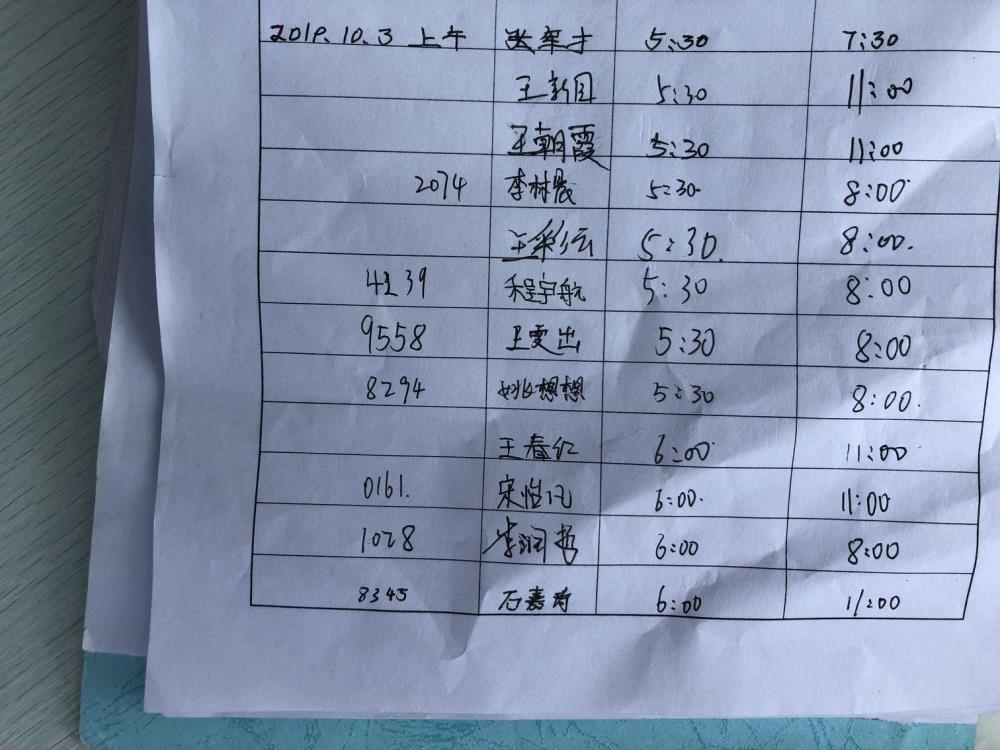 2019.10.3 上午 张军才 5:30 7:30
王新国 5:30 11:00
王朝霞 5:30 11:00
2074 李树晨 5:30 8:00
王彩云 5:30 8:00
4139 程宇航 5:30 8:00
9558 王雯出 5:30 8:00
8294 姚想想 5:30 8:00
王春红 6:00 11:00
0161. 宋恺凡 6:00 11:00
1028 李润哲 6:00 8:00
8345 石嘉 6:00 11:00